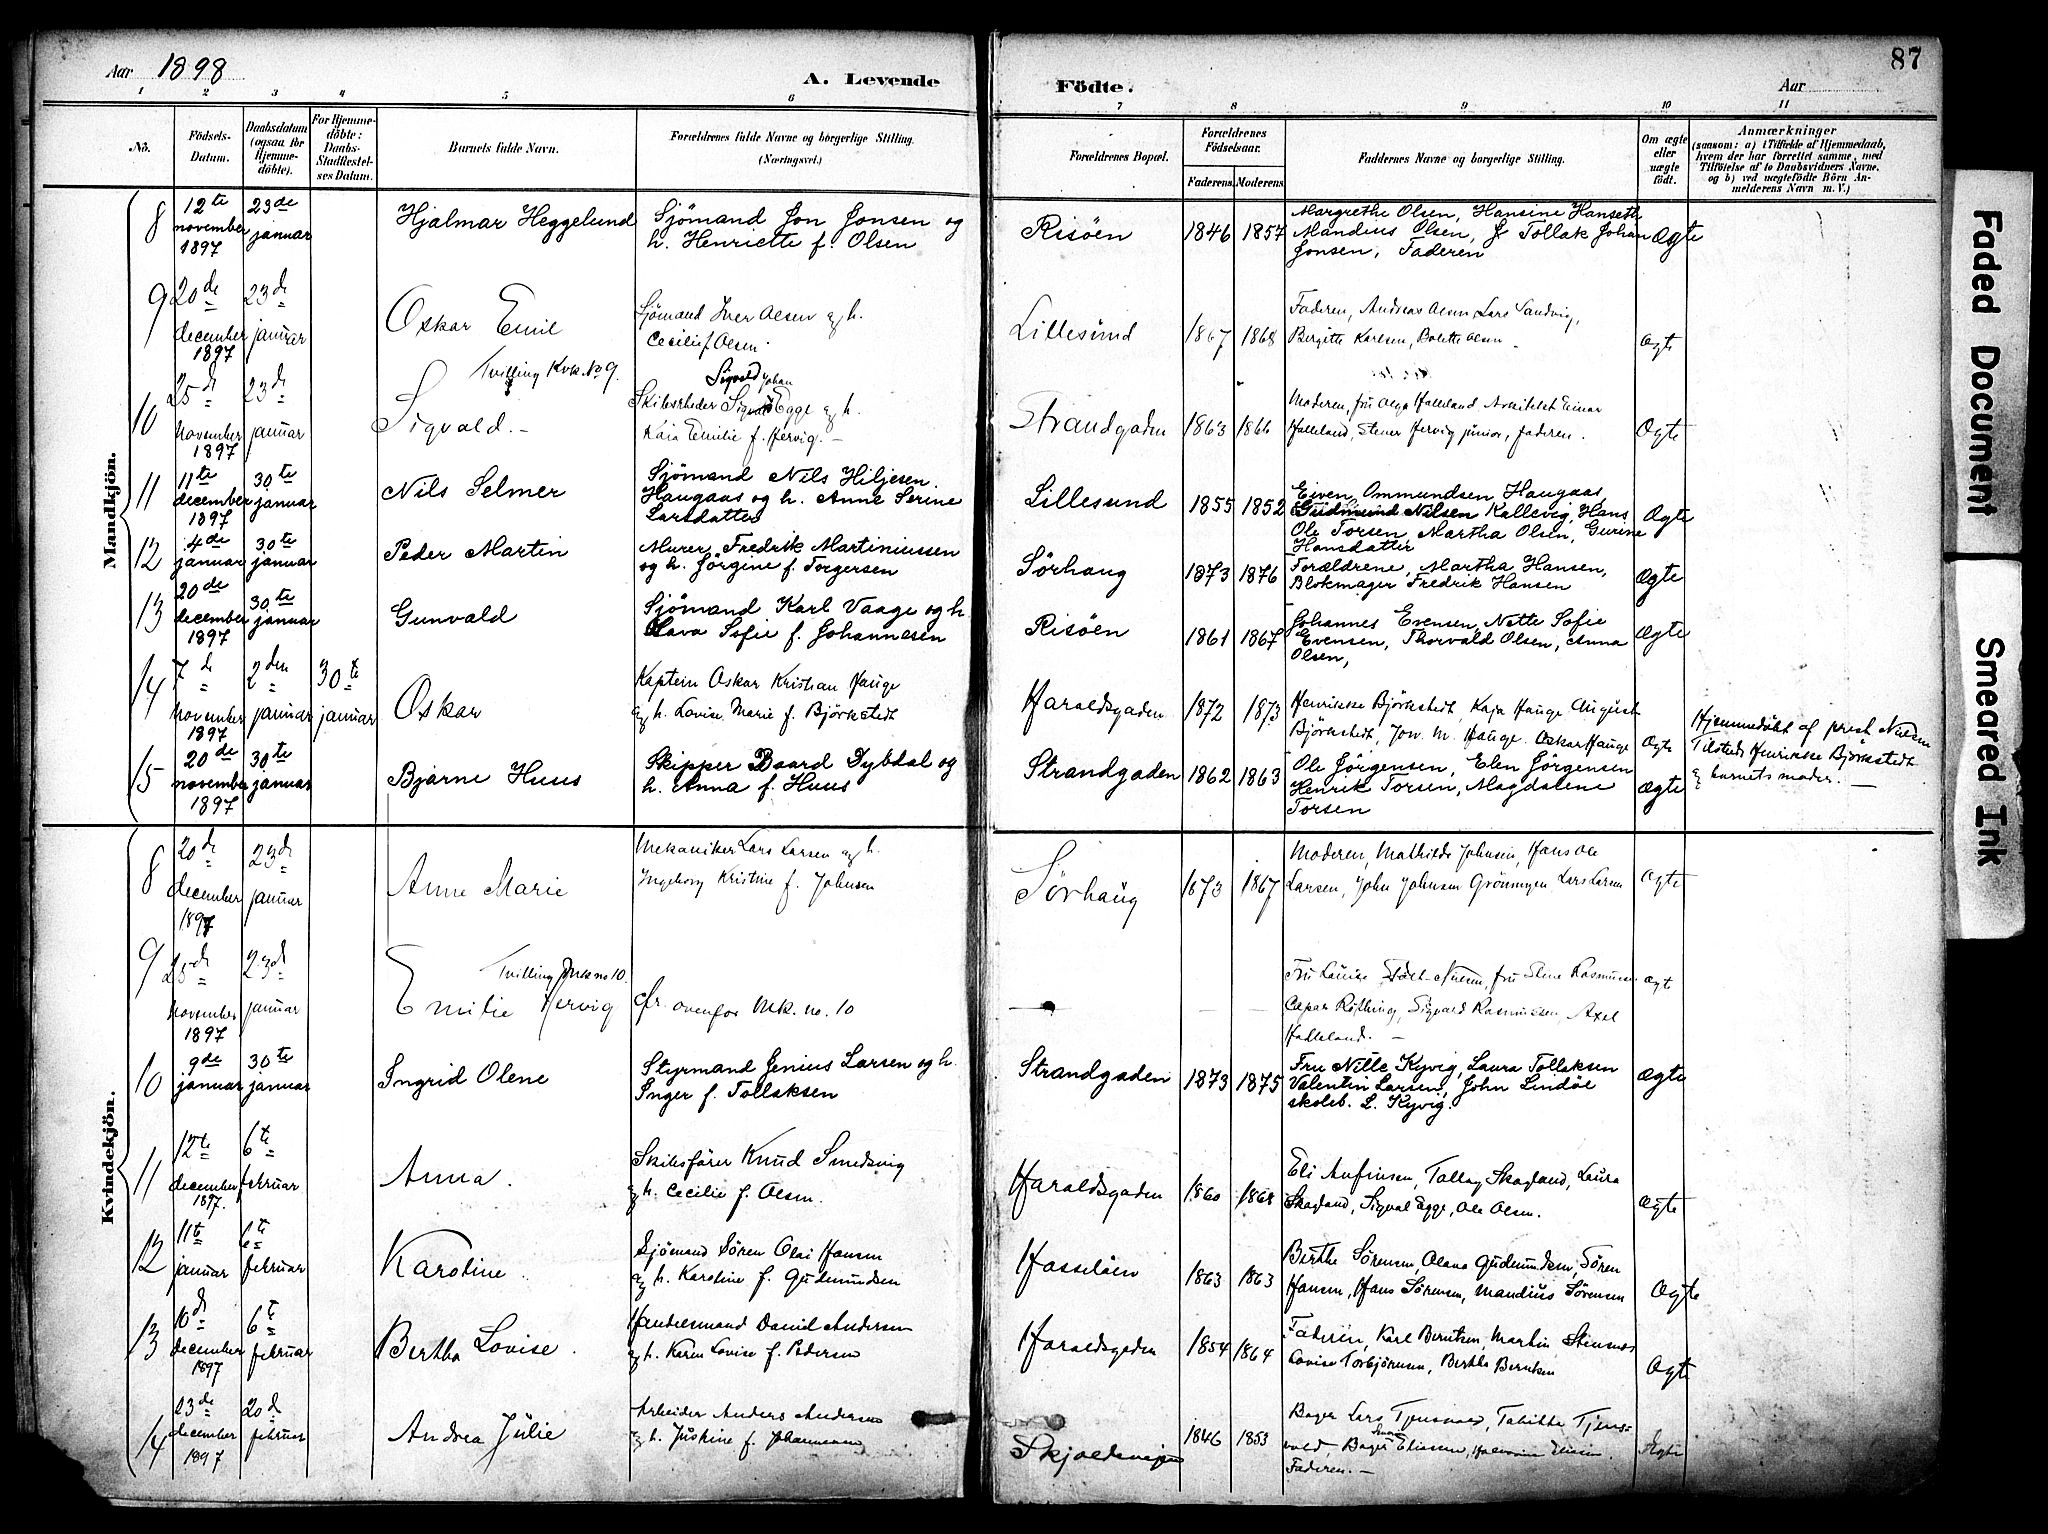 Aar 1898
A. Levende
Födte.
Aar
87
1 2 3 4 5 6 7 8 9 10 11
No.
Födsels-Datum.
Daabsdatum (ogsaa for Hjemme-döbte).
For Hjemme-döbte: Daabs-Stadfæstel-ses Datum.
Barnets fulde Navn.
Forældrenes fulde Navne og borgerlige Stilling.
(Næringsvei.)
Forældrenes Bopæl.
Forældrenes Födselsaar.
Faderens. Moderens.
Faddernes Navne og borgerlige Stilling.
Om ægte eller uægte født.
Anmærkninger
(saasom: a) i Tilfælde af Hjemmedaab,
hvem der har forrettet samme, med
Tilföielse af to Daabsvidners Navne,
og b) ved uægtefödte Börn An-
melderens Navn m. V.)
Mandkjön.
8 12te november 1897 23de januar Hjalmar Heggelund
Sjömand Jon Jonsen og
h. Henriette f. Olsen
Risöen 1846 1857
Margrethe Olsen, Hansine Hanseth
Mandius Olsen, Tollak Johan
Jonsen, Faderen
Ægte
9 20de december 1897 23de januar Oskar Emil
Sjömand Iver Olsen og h.
Cecilie f Olsen.
Lillesund 1867 1868
Faderen, Andreas Olsen, Lars Sandvig,
Bergitte Karlsen, Bolette Olsen
Ægte
Tvilling Kvk. No 9.
10 25de november 1897 23de januar Sigvald.
Sigvald Johan
Skibsrheder Egge og h.
Kaia Emilie f. Hervig.
Strandgaden 1863 1866
Moderen, fru Olga Halleland, Arkitekt Einar
Halleland, Stener Hervig junior, faderen.
Ægte
11 11te december 1897 30te januar Nils Selmer
Sjömand Nils Hiljesen
Haugaas og h. Anne Serine
Larsdatter
Lillesund 1855 1852
Eiven Ommundsen Haugaas
Gudmund Nilsen Kallevig, Hans
Ole Torsen, Martha Olsen, Gurine
Hansdatter
Ægte
12 4de januar 30te januar Peder Martin
Murer Fredrik Martiniussen
og h. Jörgine f. Torgersen
Sörhaug 1873 1876
Forældrene, Martha Hansen,
Blokmager Fredrik Hansen
Ægte
13 20de december 1897 30te januar Gunvald
Sjömand Karl Vaage og h.
Lava Sofie f. Johannesen
Risöen 1861 1867
Johannes Evensen, Nette Sofie
Evensen, Thorvald Olsen, Anna
Olsen,
Ægte
14 7de november 1897 2den januar 30te januar Oskar
Kaptein Oskar Kristian Hauge
og h. Lovise Marie f. Björkstedt
Haraldsgaden 1872 1873
Henrikke Björkstedt, Kaja Hauge August
Björkstedt, Jon. M. Hauge. Oskar Hauge
Ægte
Hjemmedöbt af prest Nielsen
Tilsteds Henrikke Björkstedt
og barnets moder.
15 20de november 1897 30te januar Bjarne Huus
Skipper Baard Dybdal og
h. Anna f. Huus
Strandgaden 1862 1863
Ole Jörgensen, Elen Jörgensen
Henrik Torsen, Magdalene
Torsen
Ægte
Kvindekjön.
8 20de december 1897 23de januar Anne Marie
Mekaniker Lars Larsen og h.
Ingeborg Kristine f. Johnsen
Sörhaug 1873 1867
Moderen, Mathilde Johnsen, Hans Ole
Larsen, John Johnsen Lars Larsen
Ægte
9 25de november 1897 23de januar Emilie Hervig
Tvilling Mk no 10.
cfr. ovenfor Mk. no. 10
Fru Louise fru Rasmussen
Sigvald Rasmussen, Axel
Halleland.
Ægte
10 9de januar 30te januar Ingrid Olene
Styrmand Jenius Larsen og h.
Inger f. Tollaksen
Strandgaden 1873 1875
Fru Nille Kyvig, Laura Tollaksen
Valentin Larsen, John Lindöe
skoleb. L. Kyvig.
Ægte
11 12te december 1897. 6te februar Anna.
Skibsförer Knud Smedsvig
og h. Cecilie f. Olsen.
Haraldsgaden 1860 1868
Eli Anfinsen, Tollag Skogland, Laura
Skogland, Sigval Egge, Ole Olsen.
Ægte
12 11te januar 6te februar Karoline
Sjömand Sören Olai Hansen
og h. Karoline f. Gudmundsen
Hasselöen 1863 1863
Berthe Sörensen, Olava Gudmundsen, Sören
Hansen, Hans Sörensen, Mandius Sörensen
Ægte
13 10de december 1897 6te februar Bertha Lovise.
Handelsmand David Andersen
og h. Karen Lovise f. Pedersen
Haraldsgaden 1854 1864
Faderen, Karl Berntsen, Martin Stensnæs
Lovise Torbjörnsen, Berthe Berntsen
Ægte
14 23de december 1897 20de februar Andrea Julie
Arbeider Anders Andersen
og h. Justine f. Johannesen
Skjoldeveien 1846 1853
Bager Lars Tjensvold, Tabitha Tjens-
vold Bager Eliassen,
Faderen.
Ægte
Faded Document
Smeared Ink